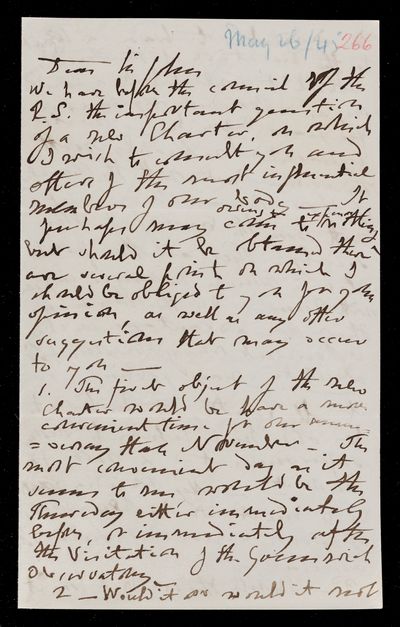 May 26/45 266
Dear Sir John
We have before the council of the
R.S. the important question
of a new Charter, on which
I wish to consult you and
others of the most influential
members of our body — It
perhaps may come to nothing
owing to expense
but should it be obtained there
are several points on which I
should be obliged to you for your
opinion, as well as any other
suggestions that may occur
to you —
1. The first object of the new
Charter would be have a more
convenient time for our anni=
=versary than November — The
most convenient day as it
seems to me would be the
Thursday either immediately
before, or immediately after
the Visitation of the Greenwich
Observatory —
2 — Would it or would it not